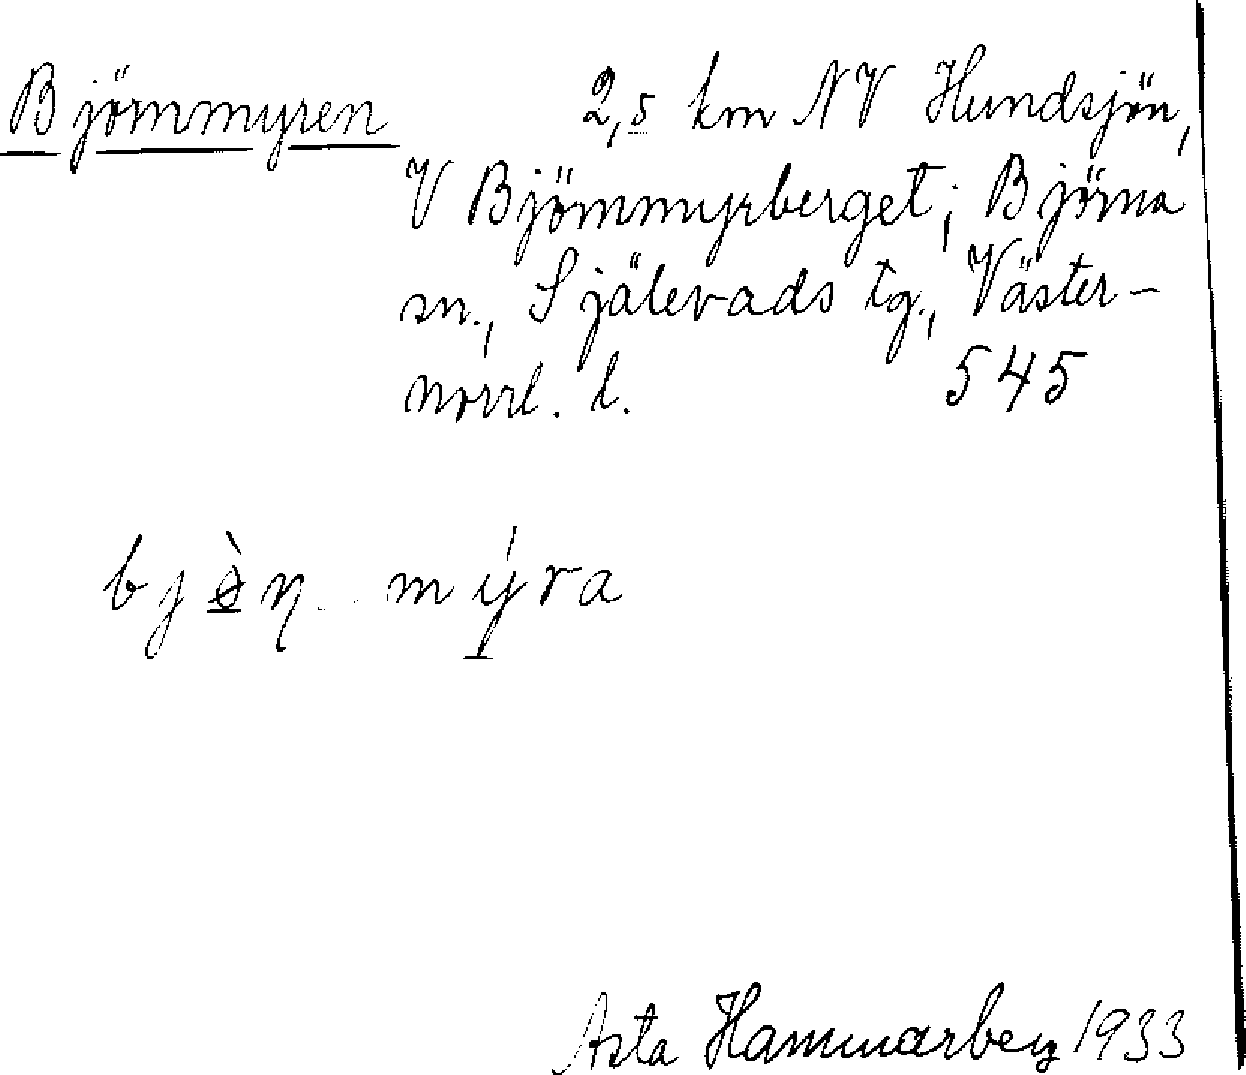 Björnmyren 2,5 km NV Hundsjön,
V Björnmyrberget; Björna
sn., Själevads tg., Väster-
norrl. l. 545
mýra
Asta Hammarberg 1933